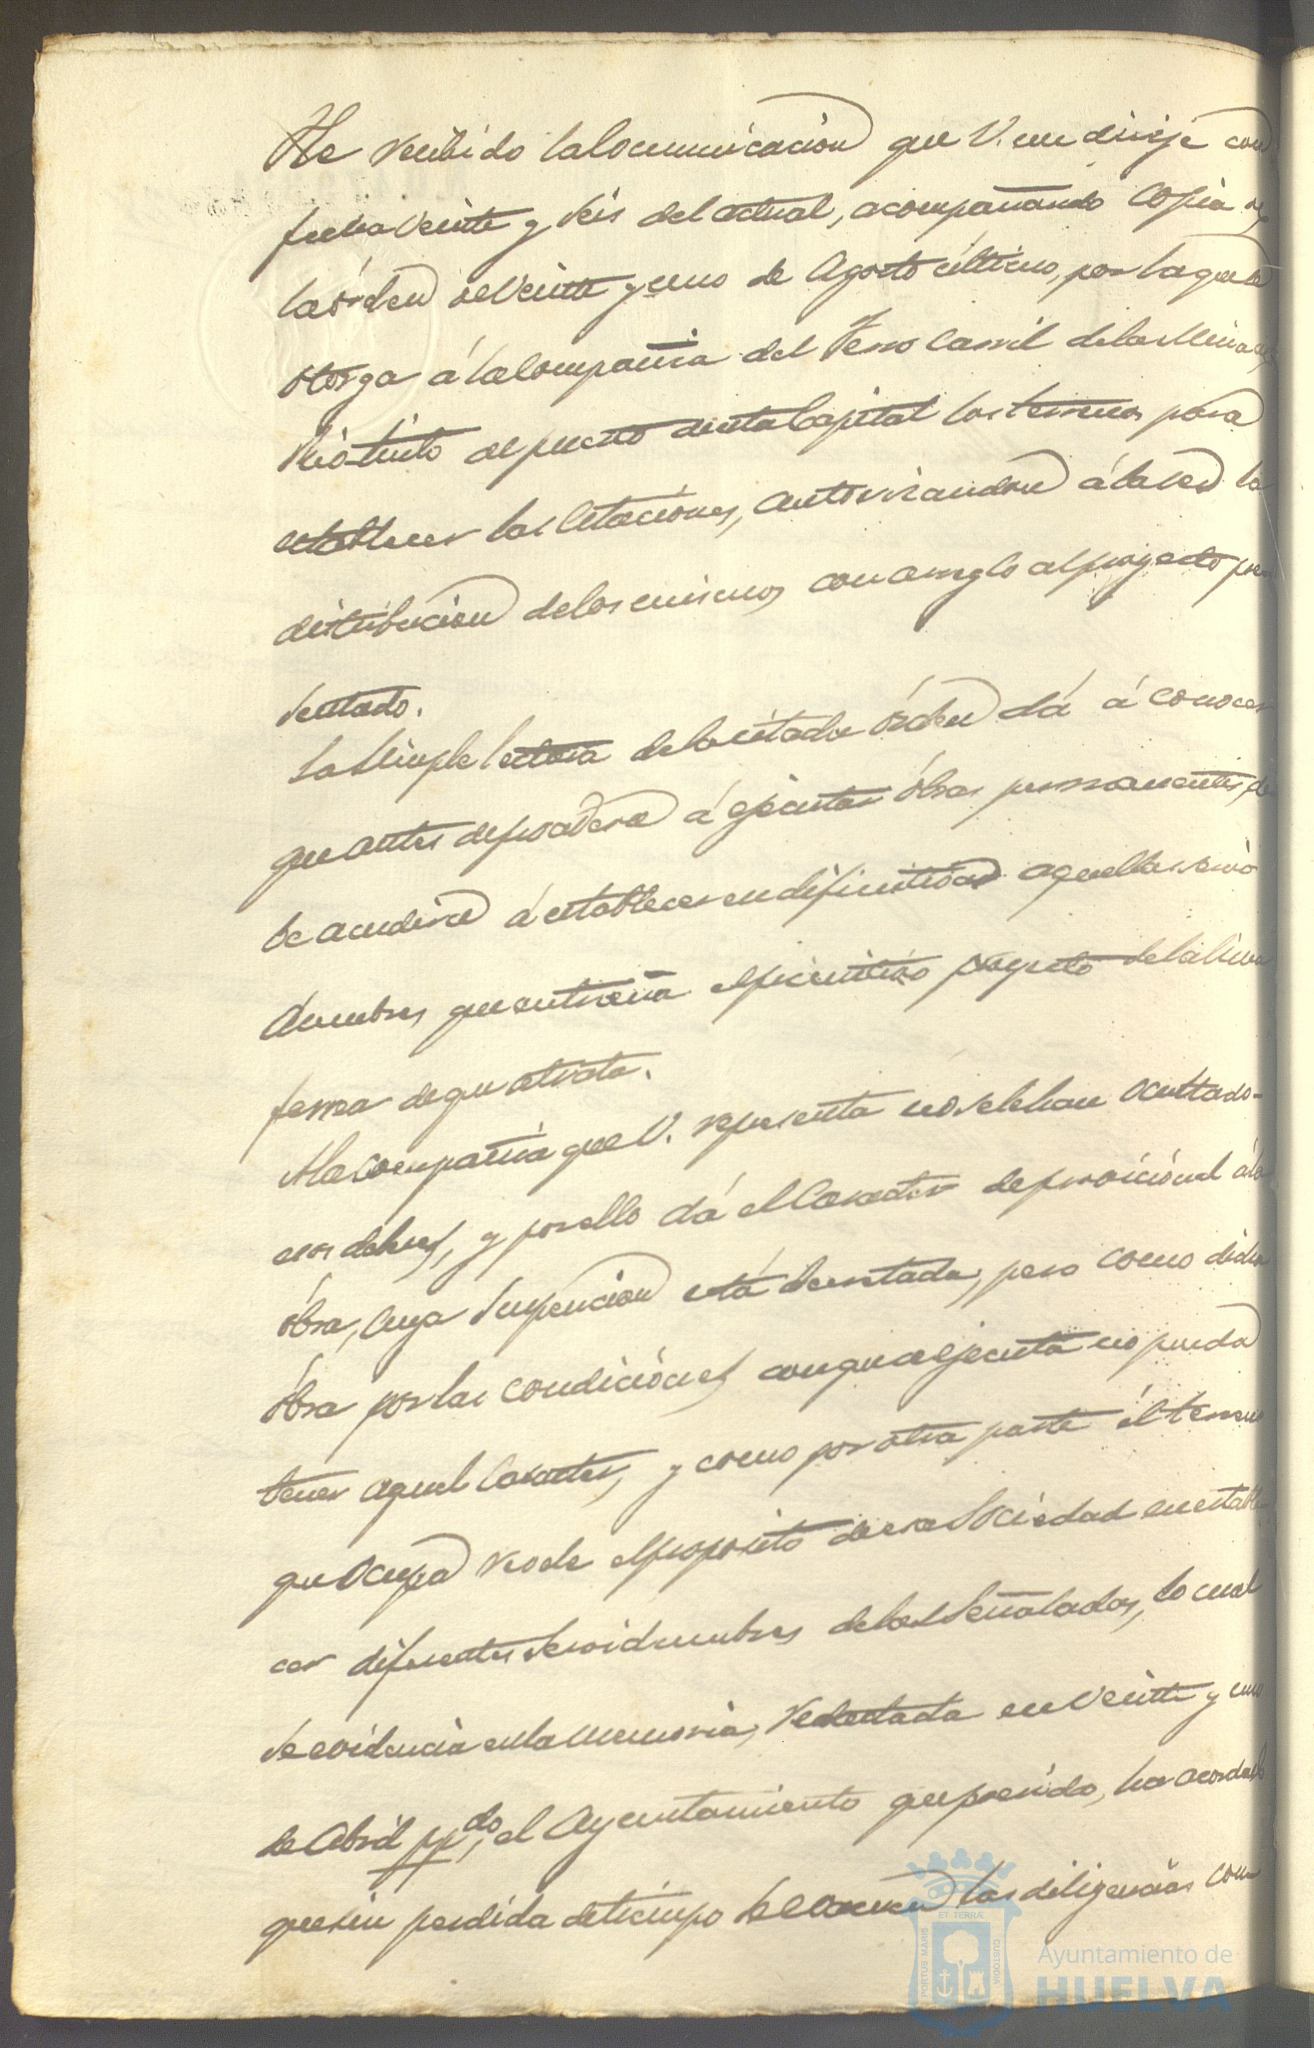 He recibido la Comunicacion que V. me dirije con
fecha veinte y seis del actual, acompañando copia de
la órden de veinte y uno de Agosto último, por la que se
otorga á la Compañia del Ferro Carril de las Minas de
Riotinto al puerto de esta Capital los terrenos para
establecer las Estaciónes, autorizandose á la vez la
distribucion de los mismos, con arreglo al proyecto pre-
sentado.
La Simple lectura de la citada órden dá á conocer
que antes de procederse á ejecutar óbras permanentes, de-
be acudirse á establecer en difinitiva aquellas servi-
dumbres que entraña el primitivo proyecto de la linea
ferrea de que se trata.
A la Compañia que V. representa no se le han ocultado
esos deberes, y por ello dá el Caracter de provisiónal á la
óbra, cuya Suspencion está decretada, pero como dicha
óbra por las condiciónes con que se ejecuta no pueda
tener aquel Caracter, y como por otra parte él terreno
que ocupa é el proposito de esa Sociedad en estable-
cer diferentes Servidumbres de las Señaladas, lo cual
se evidencia en la Memoria, redactada en Veinte y uno
de Abril ppdo, el Ayuntamiento que presido, ha acordado
que sin perdida de tiempo se las diligencias con-
ET TERRÆ
PORTUS MARIS
CUSTODIA
Ayuntamiento de
HUELVA